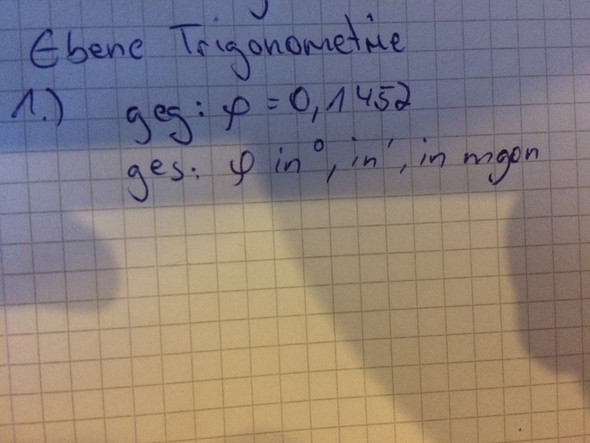 Ebene Trigonometrie
1.) geg: φ = 0,1452
ges: φ in °, in ', in mgon